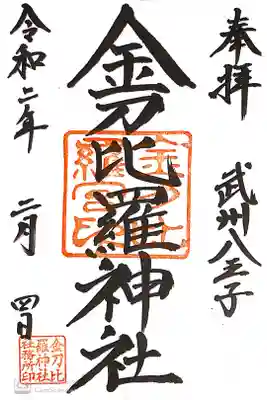 奉拝
武州八王子
金刀比羅神社
令和二年
二月
四日
金刀比
羅神社
社務所印